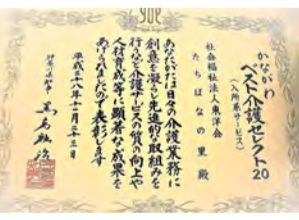 かながわ
ベスト介護セレクト20
(入所系サービス)
社会福祉法人東洋会
たちばなの里 殿
あなたがたは日々の介護業務に
創意を凝らし先進的な取組みを
行うなど介護サービスの質の向上や
人材育成等に顕著な成果を
あげられましたので表彰します
平成二十八年十一月二十三日
神奈川県知事 黒岩祐治